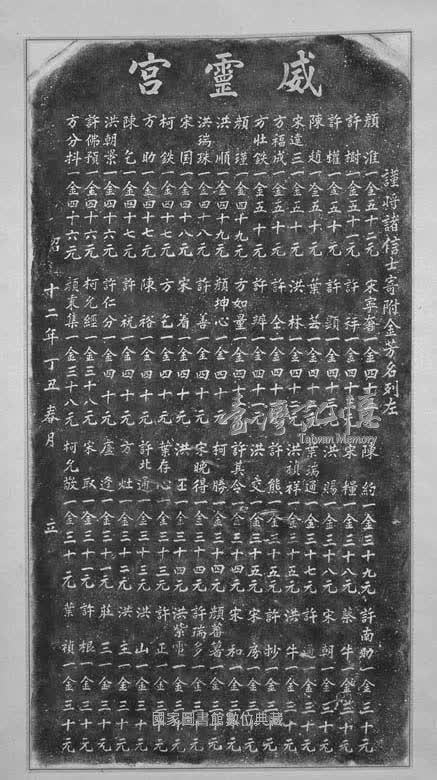 威靈宮
謹將諸信士寄附金芳名列左
顏淮一金五十二元 宋寧奢一金四十 陳約一金三十九元 許南勛一金三十元
許樹一金五十一元 許祥一金四十 宋糧一金三十八元 蔡牛一金三十元
許權一金五十元 許頭一金四十 洪賜一金三十八元 宋朝一金三十元
陳趙一金五十元 葉芸一金四十 葉瑞通一金三十七元 許通一金三十元
宋達三一金五十元 洪林一金四十 洪禎祥一金三十五元 洪牛一金三十元
方福成一金五十元 許全一金四十 許熊一金三十五元 許抄一金三十元
方壯鉄一金五十元 許辨一金四十一元 洪交一金三十五元 宋房一金三十元
顏瑾一金四十九元 方如量一金四十一元 許其令一金三十五元 宋和一金三十元
洪順一金四十九元 顏坤心一金四十元 柯勝一金三十四元 顏蕃薯一金三十元
洪瑞珠一金四十八元 許善一金四十元 宋晚得一金三十四元 許瑞多一金三十元
宋国一金四十八元 宋着一金四十元 洪丕一金三十四元 洪紫電一金三十元
柯鉄一金四十七元 方乞一金四十元 葉存心一金三十三元 許正一金三十元
方助一金四十七元 陳裕一金四十元 許北通一金三十三元 洪山一金三十元
陳乞一金四十七元 許祝一金四十元 方灶一金三十二元 洪主一金三十元
洪朝景一金四十六元 許仁分一金四十元 盧逢一金三十一元 莊三一金三十元
許佛預一金四十六元 柯允經一金三十八元 宋取一金三十一元 許根一金三十元
方分抖一金四十六元 顏東集一金三十八元 柯允敬一金三十元 葉禎一金三十元
昭 十二年丁丑春月 立
臺灣記憶
Taiwan Memory
國家圖書館數位典藏